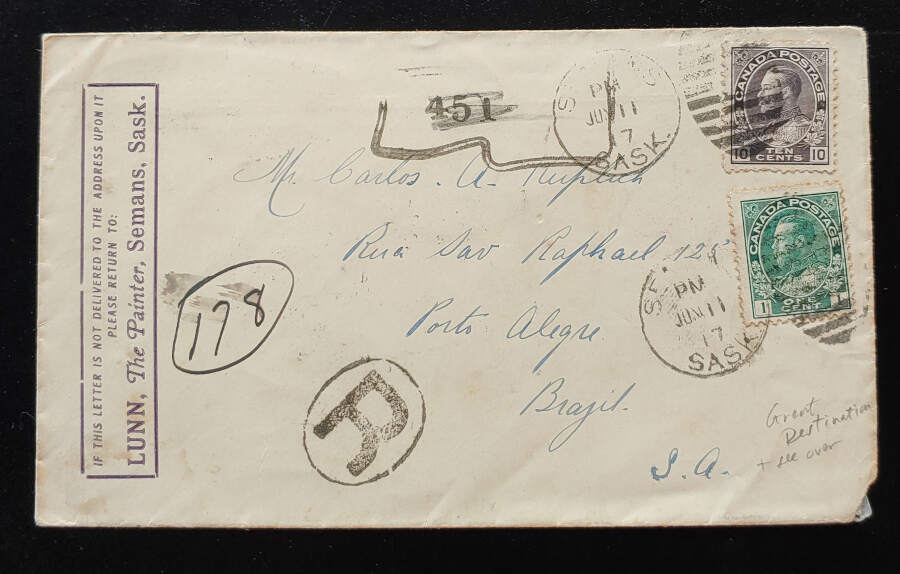 IF THIS LETTER IS NOT DELIVERED TO THE ADDRESS UPON IT
PLEASE RETURN TO:
LUNN, The Painter, Semans, Sask.
451
PM
JUN 11
17
SASK.
CANADA POSTAGE
10 TEN CENTS 10
Mr. Carlos. A.
Rua Sav Raphael 125
Porto Alegre
Brazil.
S. A.
178
R
PM
JUN 11
17
SASK.
CANADA POSTAGE
1 ONE CENT 1
Great
Destination
+ see over